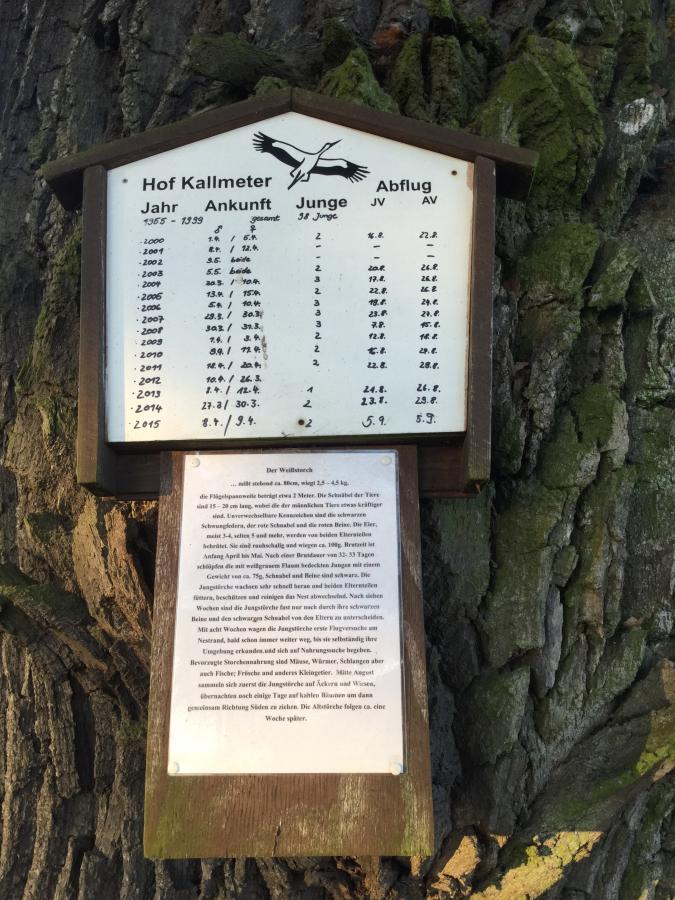 Hof Kallmeter Abflug
Jahr Ankunft Junge JV AV
1965 - 1999 gesamt 98 Junge
♂ ♀
2000 1.4. / 5.4. 2 16.8. 22.8.
2001 8.4. / 12.4. - - -
2002 9.5. beide - - -
2003 5.5. beide 2 20.8. 26.8.
2004 20.3. / 10.4. 3 17.8. 26.8.
2005 13.4. / 15.4. 2 22.8. 26.8.
2006 5.4. / 10.4. 3 19.8. 24.8.
2007 29.3. / 30.3. 3 23.8. 27.8.
2008 30.3. / 31.3. 3 7.8. 15.8.
2009 1.4. / 3.4. 2 12.8. 18.8.
2010 9.4. / 2 16.8. 27.8.
2011 18.4. / 20.4. 2 22.8. 28.8.
2012 10.4. / 26.3.
2013 8.4. / 12.4. 1 21.8. 26.8.
2014 27.3 / 30.3. 2 23.8. 29.8.
2015 8.4. / 9.4. 2 5.9. 5.9.
Der Weißstorch
... mißt stehend ca. 80cm, wiegt 2,5 – 4,5 kg,
die Flügelspannweite beträgt etwa 2 Meter. Die Schnäbel der Tiere
sind 15 – 20 cm lang, wobei die der männlichen Tiere etwas kräftiger
sind. Unverwechselbare Kennzeichen sind die schwarzen
Schwungfedern, der rote Schnabel und die roten Beine. Die Eier,
meist 3-4, selten 5 und mehr, werden von beiden Elternteilen
bebrütet. Sie sind rauhschalig und wiegen ca. 100g. Brutzeit ist
Anfang April bis Mai. Nach einer Brutdauer von 32- 33 Tagen
schlüpfen die mit weißgrauem Flaum bedeckten Jungen mit einem
Gewicht von ca. 75g, Schnabel und Beine sind schwarz. Die
Jungstörche wachsen sehr schnell heran und beiden Elternteilen
füttern, beschützen und reinigen das Nest abwechselnd. Nach sieben
Wochen sind die Jungstörche fast nur noch durch ihre schwarzen
Beine und den schwarzen Schnabel von den Eltern zu unterscheiden.
Mit acht Wochen wagen die Jungstörche erste Flugversuche am
Nestrand, bald schon immer weiter weg, bis sie selbständig ihre
Umgebung erkunden.und sich auf Nahrungssuche begeben.
Bevorzugte Storchennahrung sind Mäuse, Würmer, Schlangen aber
auch Fische; Frösche und anderes Kleingetier. Mitte August
sammeln sich zuerst die Jungstörche auf Äckern und Wiesen,
übernachten noch einige Tage auf kahlen Bäumen um dann
gemeinsam Richtung Süden zu ziehen. Die Altstörche folgen ca. eine
Woche später.